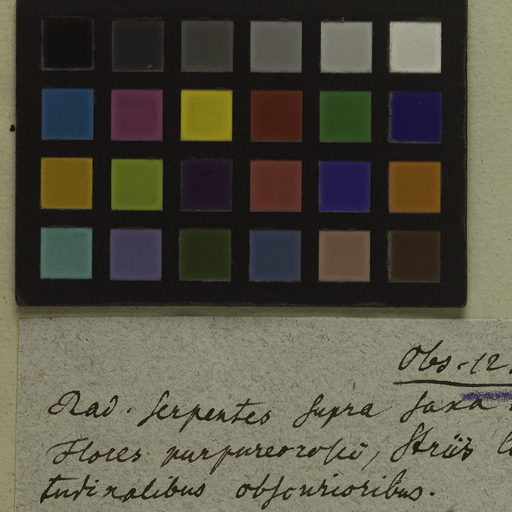 Obs. 12.
Rad. serpentes supra saxa
Flores purpureorosei, Striis
tudinalibus obscurioribus.